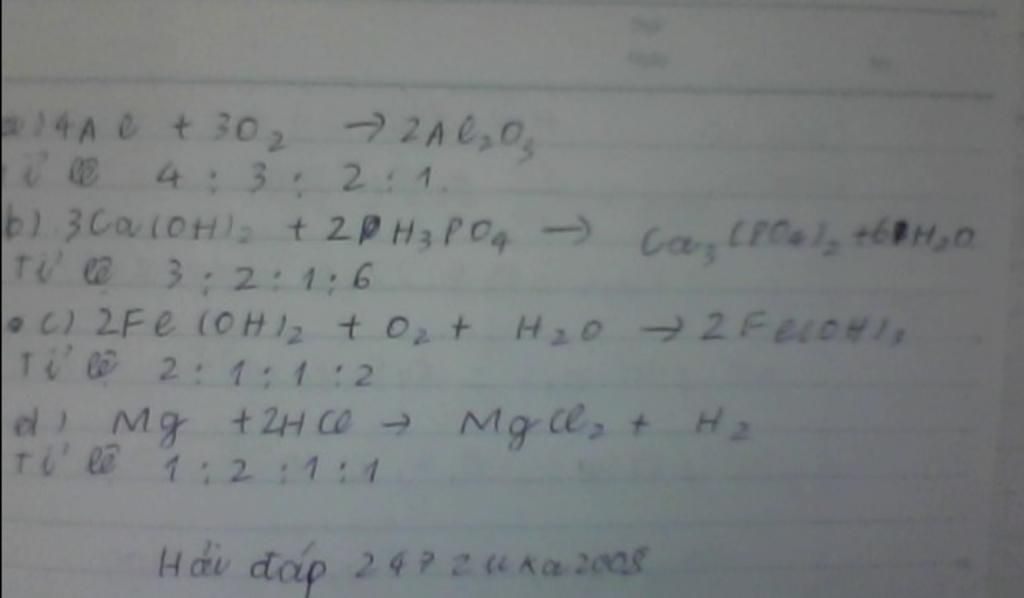 a) 4Al + 3O₂ → 2Al₂O₃
Tỉ lệ 4 : 3 : 2 : 1.
b) 3Ca(OH)₂ + 2 H₃PO₄ → Ca₃(PO₄)₂ + 6 H₂O
Tỉ lệ 3 : 2 : 1 : 6
c) 2Fe(OH)₂ + O₂ + H₂O → 2Fe(OH)₃
Tỉ lệ 2 : 1 : 1 : 2
d) Mg + 2HCl → MgCl₂ + H₂
Tỉ lệ 1 : 2 : 1 : 1
Hỏi đáp 247